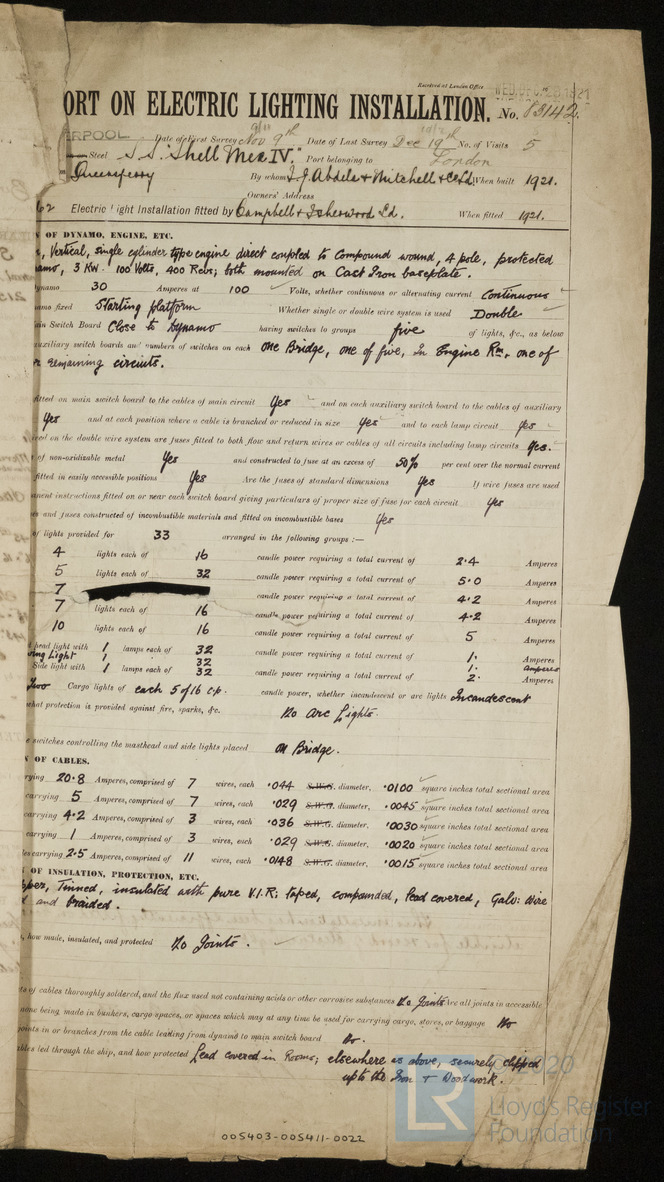 Received at London Office WED. DEC. 28 1921
ORT ON ELECTRIC LIGHTING INSTALLATION. No. 83142
ERPOOL Date of First Survey Nov 9th Date of Last Survey Dec 19th No. of Visits 5
Steel S.S. "Shell Mex IV." Port belonging to London
Queensferry By whom I. J. Abdela & Mitchell & Co Ld When built 1921.
Owners' Address
Electric Light Installation fitted by Campbell & Isherwood Ld. When fitted 1921.
OF DYNAMO, ENGINE, ETC.
Vertical, single cylinder type engine direct coupled to Compound wound, 4 pole, protected
amo, 3 Kw. 100 Volts, 400 Revs; both mounted on Cast Iron baseplate.
ynamo 30 Amperes at 100 Volts, whether continuous or alternating current Continuous
amo fixed Starting platform Whether single or double wire system is used Double
ain Switch Board Close to Dynamo having switches to groups five of lights, &c., as below
auxiliary switch boards and numbers of switches on each One Bridge, one of five, In Engine Rm, one of
remaining circuits.
fitted on main switch board to the cables of main circuit Yes and on each auxiliary switch board to the cables of auxiliary
Yes and at each position where a cable is branched or reduced in size Yes and to each lamp circuit Yes
ired on the double wire system are fuses fitted to both flow and return wires or cables of all circuits including lamp circuits Yes.
of non-oxidizable metal Yes and constructed to fuse at an excess of 50% per cent over the normal current
fitted in easily accessible positions Yes Are the fuses of standard dimensions Yes If wire fuses are used
anent instructions fitted on or near each switch board giving particulars of proper size of fuse for each circuit Yes
es and fuses constructed of incombustible materials and fitted on incombustible bases Yes
of lights provided for 33 arranged in the following groups :—
4 lights each of 16 candle power requiring a total current of 2.4 Amperes
5 lights each of 32 candle power requiring a total current of 5.0 Amperes
7 candle power requiring a total current of 4.2 Amperes
7 lights each of 16 candle power requiring a total current of 4.2 Amperes
10 lights each of 16 candle power requiring a total current of 5 Amperes
head light with 1 lamps each of 32 candle power requiring a total current of 1. Amperes
Light 1 32 1. Amperes
Side light with 1 lamps each of 32 candle power requiring a total current of 2. Amperes
Two Cargo lights of each 5 of 16 c.p. candle power, whether incandescent or arc lights Incandescent
what protection is provided against fire, sparks, &c. No Arc Lights.
e switches controlling the masthead and side lights placed On Bridge.
OF CABLES.
rying 20.8 Amperes, comprised of 7 wires, each .044 S.W.G. diameter, .0100 square inches total sectional area
carrying 5 Amperes, comprised of 7 wires, each .029 S.W.G. diameter, .0045 square inches total sectional area
carrying 4.2 Amperes, comprised of 3 wires, each .036 S.W.G. diameter, .0030 square inches total sectional area
carrying 1 Amperes, comprised of 3 wires, each .029 S.W.G. diameter, .0020 square inches total sectional area
les carrying 2.5 Amperes, comprised of 11 wires, each .0148 S.W.G. diameter, .0015 square inches total sectional area
OF INSULATION, PROTECTION, ETC.
pper, Tinned, insulated with pure V.I.R; taped, compounded, lead covered, Galv: Wire
d and braided.
s, how made, insulated, and protected No Joints.
ts of cables thoroughly soldered, and the flux used not containing acids or other corrosive substances No Joints Are all joints in accessible
none being made in bunkers, cargo spaces, or spaces which may at any time be used for carrying cargo, stores, or baggage No
joints in or branches from the cable leading from dynamo to main switch board No.
ables led through the ship, and how protected Lead covered in Rooms; elsewhere as above, securely clipped
up to the Iron & Woodwork.
© 2020
LR Lloyd's Register
Foundation
005403-005411-0022